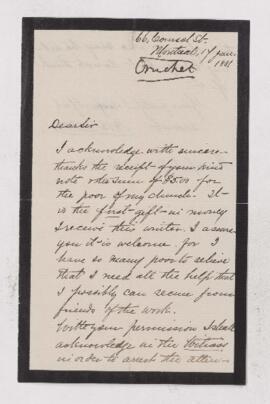 66, Consol St.
Montreal, 17 janv.
1881
Cruchet
Dear Sir
I acknowledge with sincere
thanks the receipt of your kind
note & the sum of $5.00 for
the poor of my church. It
is the first gift in money
I receive this winter. I assure
you it is welcome for I
have so many poor to relieve
that I need all the help that
I possibly can secure from
friends of the work.
With your permission I shall
acknowledge in the Witness
in order to arrest the atten-